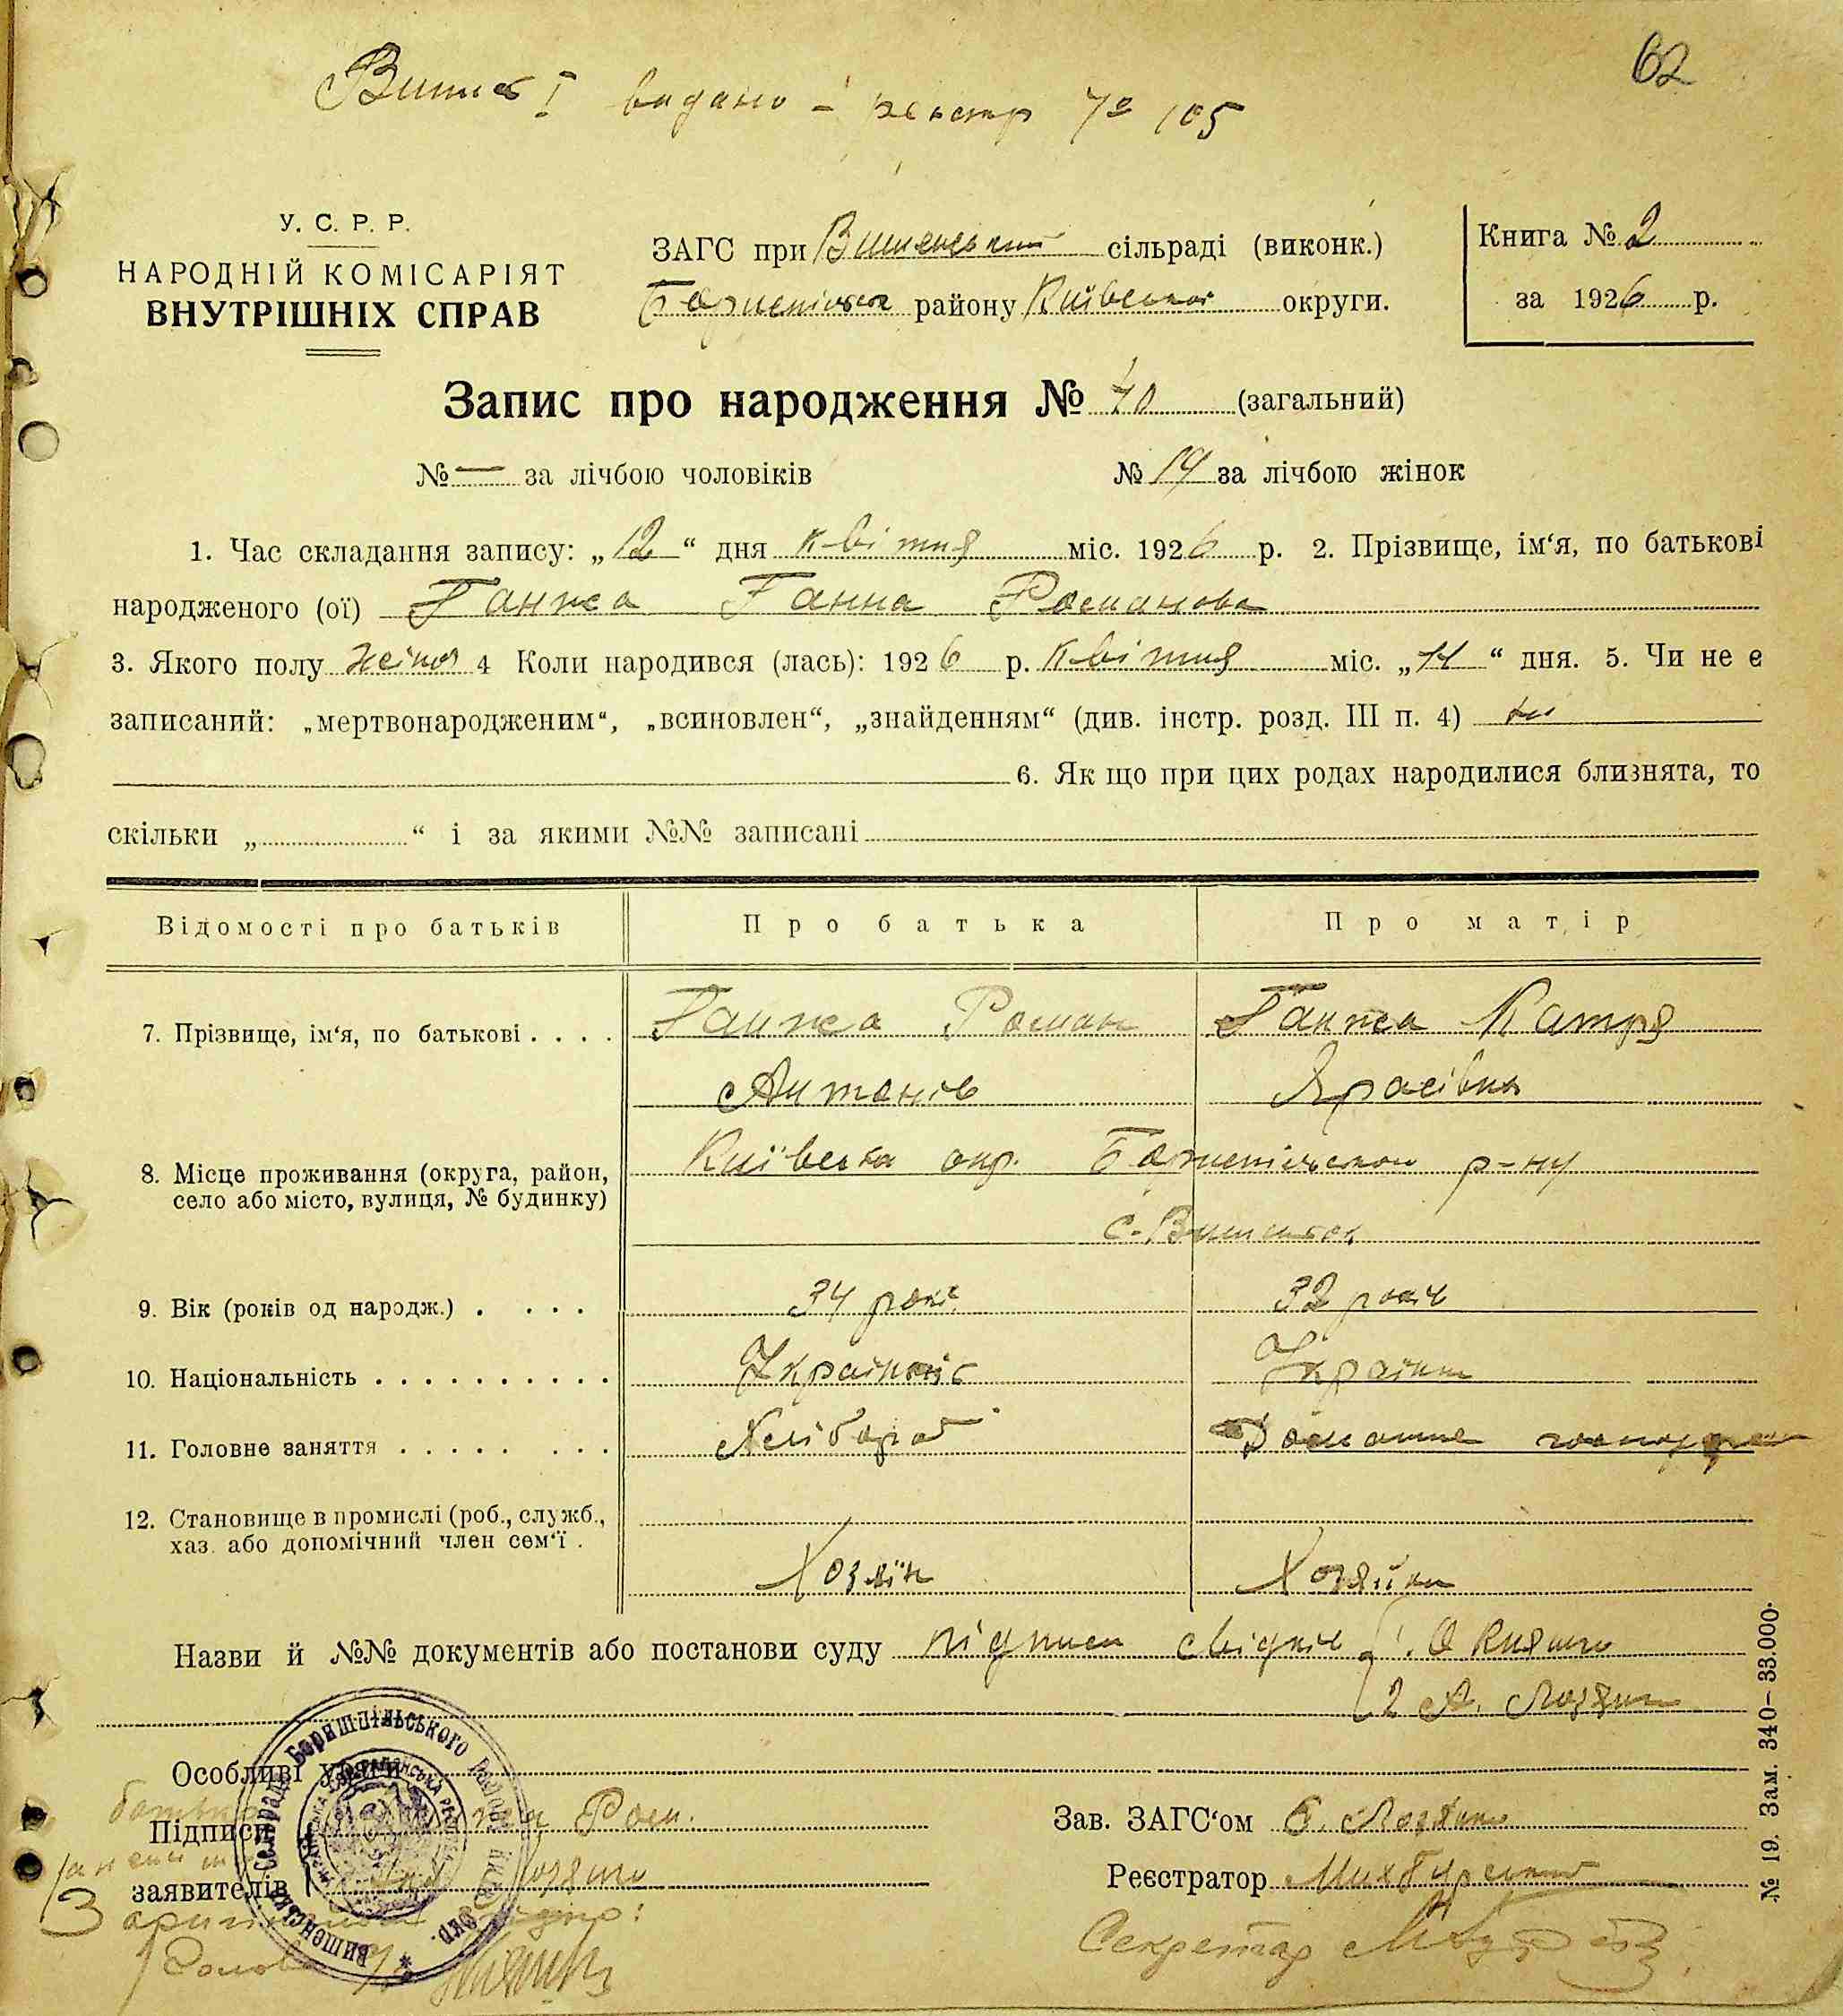 62
Витяг I видано – реєстр № 105
У. С. Р. Р.
НАРОДНІЙ КОМІСАРІЯТ
ВНУТРІШНІХ СПРАВ
ЗАГС при Вишенській сільраді (виконк.)
району Київської округи.
Книга № 2
за 1926 р.
Запис про народження № 40 (загальний)
№ — за лічбою чоловіків № 19 за лічбою жінок
1. Час складання запису: „12“ дня квітня міс. 1926 р. 2. Прізвище, ім‘я, по батькові
народженого (ої) Ганжа Ганна Романова
3. Якого полу жіноч 4 Коли народився (лась): 1926 р. квітня міс. „11“ дня. 5. Чи не є
записаний: „мертвонародженим“, „всиновлен“, „знайденням“ (див. інстр. розд. III п. 4) ні
6. Як що при цих родах народилися близнята, то
скільки „ “ і за якими №№ записані
Відомості про батьків Про батька Про матір
7. Прізвище, ім‘я, по батькові . . . . Ганжа Роман Ганжа Катря
Антонів
Київська окр. р-ну
8. Місце проживання (округа, район,
село або місто, вулиця, № будинку)
с. Вишеньки
9. Вік (років од народж.) . . . . 34 рокі 32 років
10. Національність . . . . . . . . . . Українець Українка
11. Головне заняття . . . . . . . . Хлібороб Домашне господар
12. Становище в промислі (роб., служб.,
хаз. або допомічний член сем‘ї .
Хозяїн Хозяйка
Назви й №№ документів або постанови суду підписи свідків 1.
2 А. Лозян
Особливі уваги
Підписи Ром.
заявителів
Зав. ЗАГС‘ом
Реєстратор
З оригіналом згідно:
Голова
Секретар
Вишенська сельрада Боришпільського району Київ. окр.
№ 19. Зам. 340–33.000.